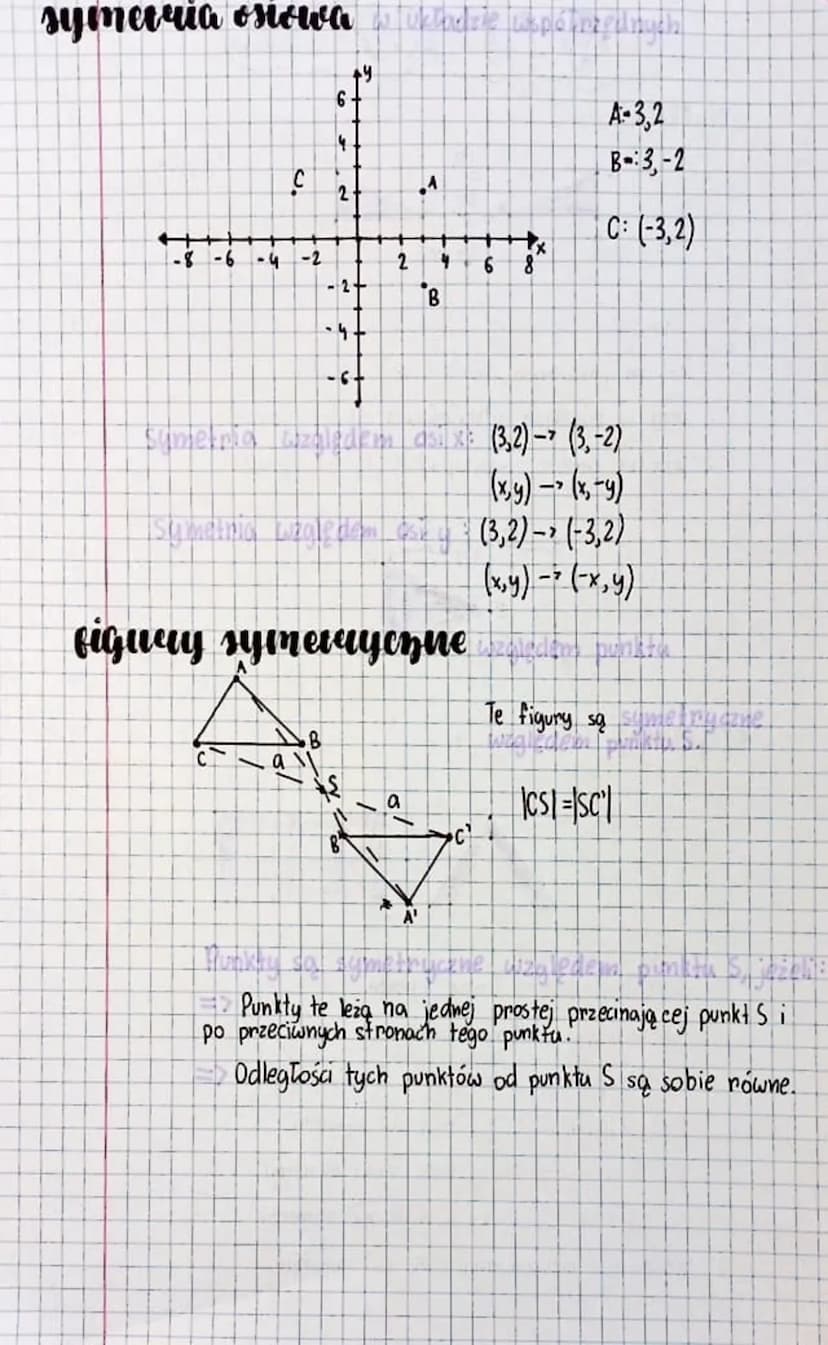 symetria osiowa w układzie współrzędnych
y
6
4
2
C
A
A=3,2
B=:3,-2
C: (-3,2)
-8 -6 -4 -2 2 4 6 8 x
-2
B
-4
-6
Symetria względem osi x: (3,2) -> (3,-2)
(x,y) -> (x,-y)
Symetria względem osi y: (3,2) -> (-3,2)
(x,y) -> (-x,y)
figury symetryczne względem punktu
A
B
C
a
S
a
B'
C'
A'
Te figury są symetryczne
względem punktu S.
|CS|=|SC'|
Punkty są symetryczne względem punktu S, jeżeli:
=> Punkty te leżą na jednej prostej przecinającej punkt S i
po przeciwnych stronach tego punktu.
=> Odległości tych punktów od punktu S są sobie równe.